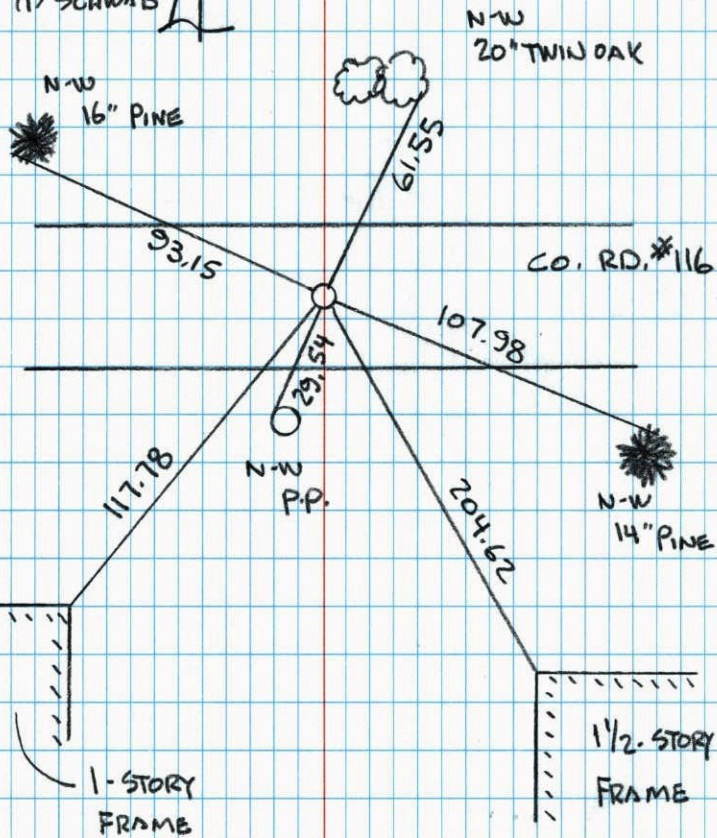 SCHWAB
N-W
20" TWIN OAK
N-W
16" PINE
61.55
93.15
CO. RD. #116
107.98
29.54
N-W
P.P.
117.78
204.62
N-W
14" PINE
1-STORY
FRAME
1 1/2-STORY
FRAME